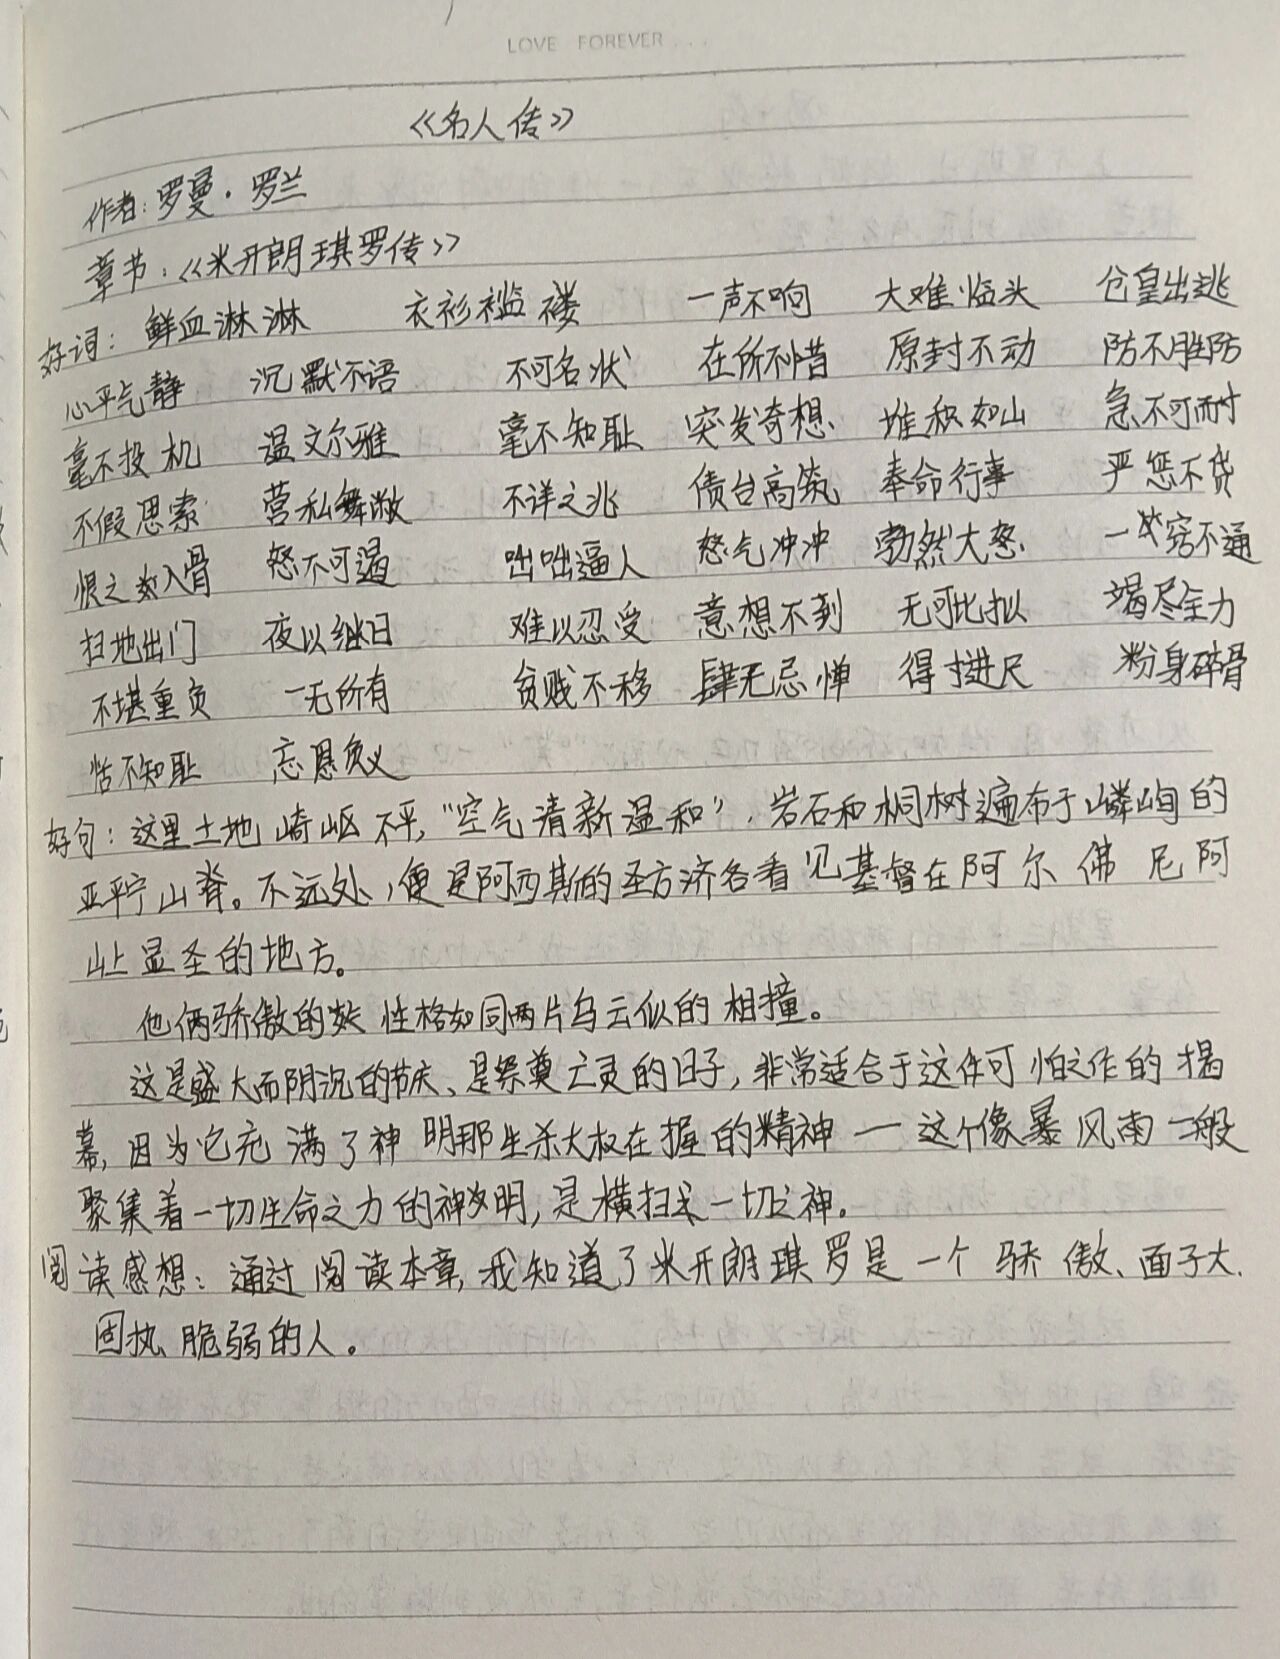 LOVE FOREVER ...
《名人传》
作者：罗曼·罗兰
章节：《米开朗琪罗传》
好词：鲜血淋淋 衣衫褴褛 一声不响 大难临头 仓皇出逃
心平气静 沉默不语 不可名状 在所不惜 原封不动 防不胜防
毫不投机 温文尔雅 毫不知耻 突发奇想 堆积如山 急不可耐
不假思索 营私舞敝 不详之兆 债台高筑 奉命行事 严惩不贷
恨之如入骨 怒不可遏 咄咄逼人 怒气冲冲 勃然大怒 一窍不通
扫地出门 夜以继日 难以忍受 意想不到 无可比拟 竭尽全力
不堪重负 一无所有 贫贱不移 肆无忌惮 得寸进尺 粉身碎骨
恬不知耻 忘恩负义
好句：这里土地崎岖不平，"空气清新温和"，岩石和桐树遍布于嶙峋的
亚平宁山脊。不远处，便是阿西斯的圣方济各看见基督在阿尔佛尼阿
山上显圣的地方。
他俩骄傲的性格如同两片乌云似的相撞。
这是盛大而阴沉的节庆、是祭奠亡灵的日子，非常适合于这件可怕之作的揭
幕，因为它充满了神明那生杀大权在握的精神一这个像暴风雨一般
聚集着一切生命之力的神明，是横扫一切之神。
阅读感想：通过阅读本章，我知道了米开朗琪罗是一个骄傲、面子大、
固执、脆弱的人。